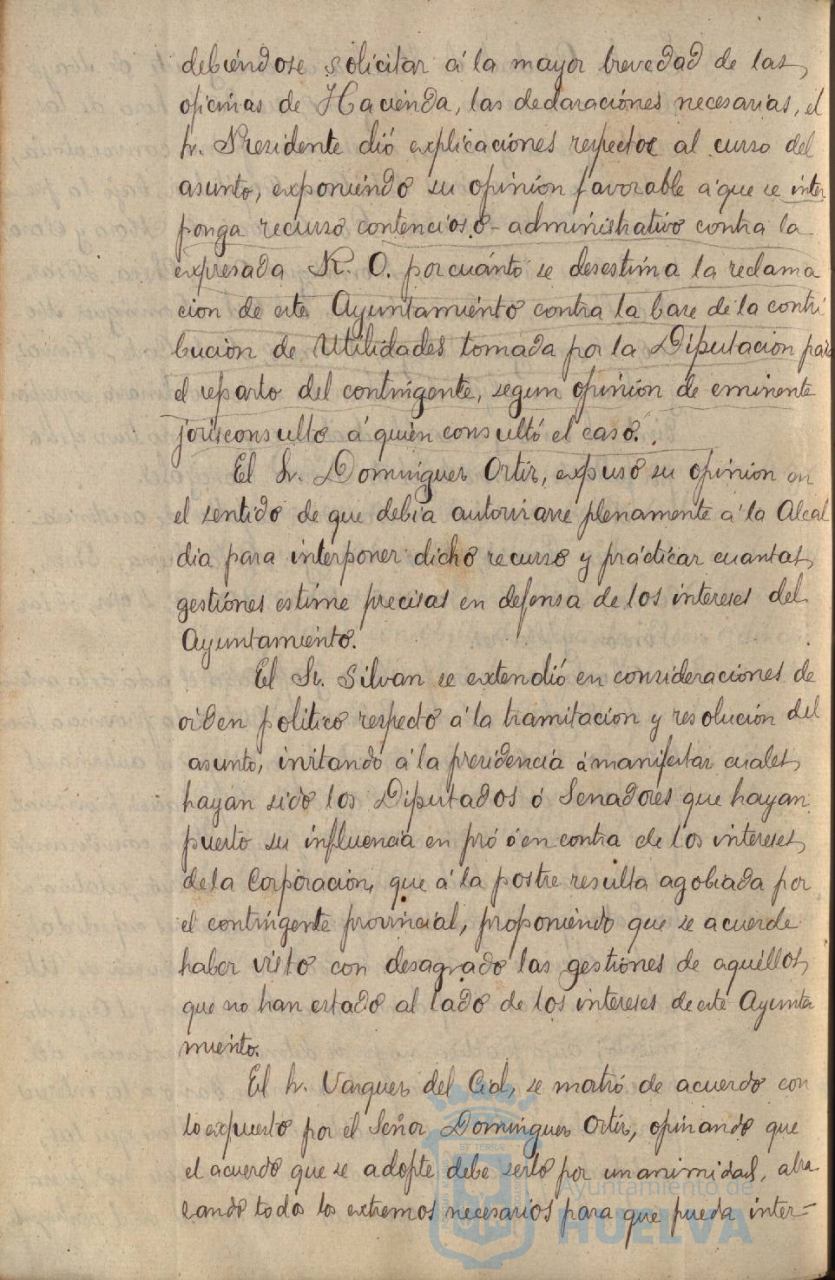 debiéndose solicitar á la mayor brevedad de las
oficinas de Hacienda, las declaraciónes necesarias, el
Sr. Presidente dió explicaciones respectoc al curso del
asunto, exponiendo su opinión favorable á que se inter
ponga recurso contencioso-administrativo contra la
expresada R. O. por cuánto se desestima la reclama
ción de este Ayuntamiento contra la base de la contri
bución de Utilidades tomada por la Diputación para
el reparto del contingente, segun opinión de eminente
jorisconsulto á quién consultó el caso.
El Sr. Dominguez Ortiz, expuso su opinion en
el sentido de que debia autorizarse plenamente á la Alcal
dia para interponer dicho recurso y practicar cuantas
gestiónes estime precisas en defensa de los intereses del
Ayuntamiento.
El Sr. Silvan se extendió en consideraciones de
orden politico respecto á la tramitación y resolución del
asunto, invitando á la presidencia á manifestar cuales
hayan sido los Diputados ó Senadores que hayan
puesto su influencia en pró ó en contra de los intereses
de la Corporación, que á la postre resulta agobiada por
el contingente provincial, proponiendo que se acuerde
haber visto con desagrado las gestiones de aquéllos
que no han estado al lado de los intereses de este Ayunta
miento.
El Sr. Vazquez del Cid, se mostró de acuerdo con
lo expuesto por el Señor Dominguez Ortiz, opinando que
el acuerdo que se adopte debe serlo por unanimidad, abra
zando todos los extremos necesarios para que pueda inter=
Ayuntamiento de
HUELVA